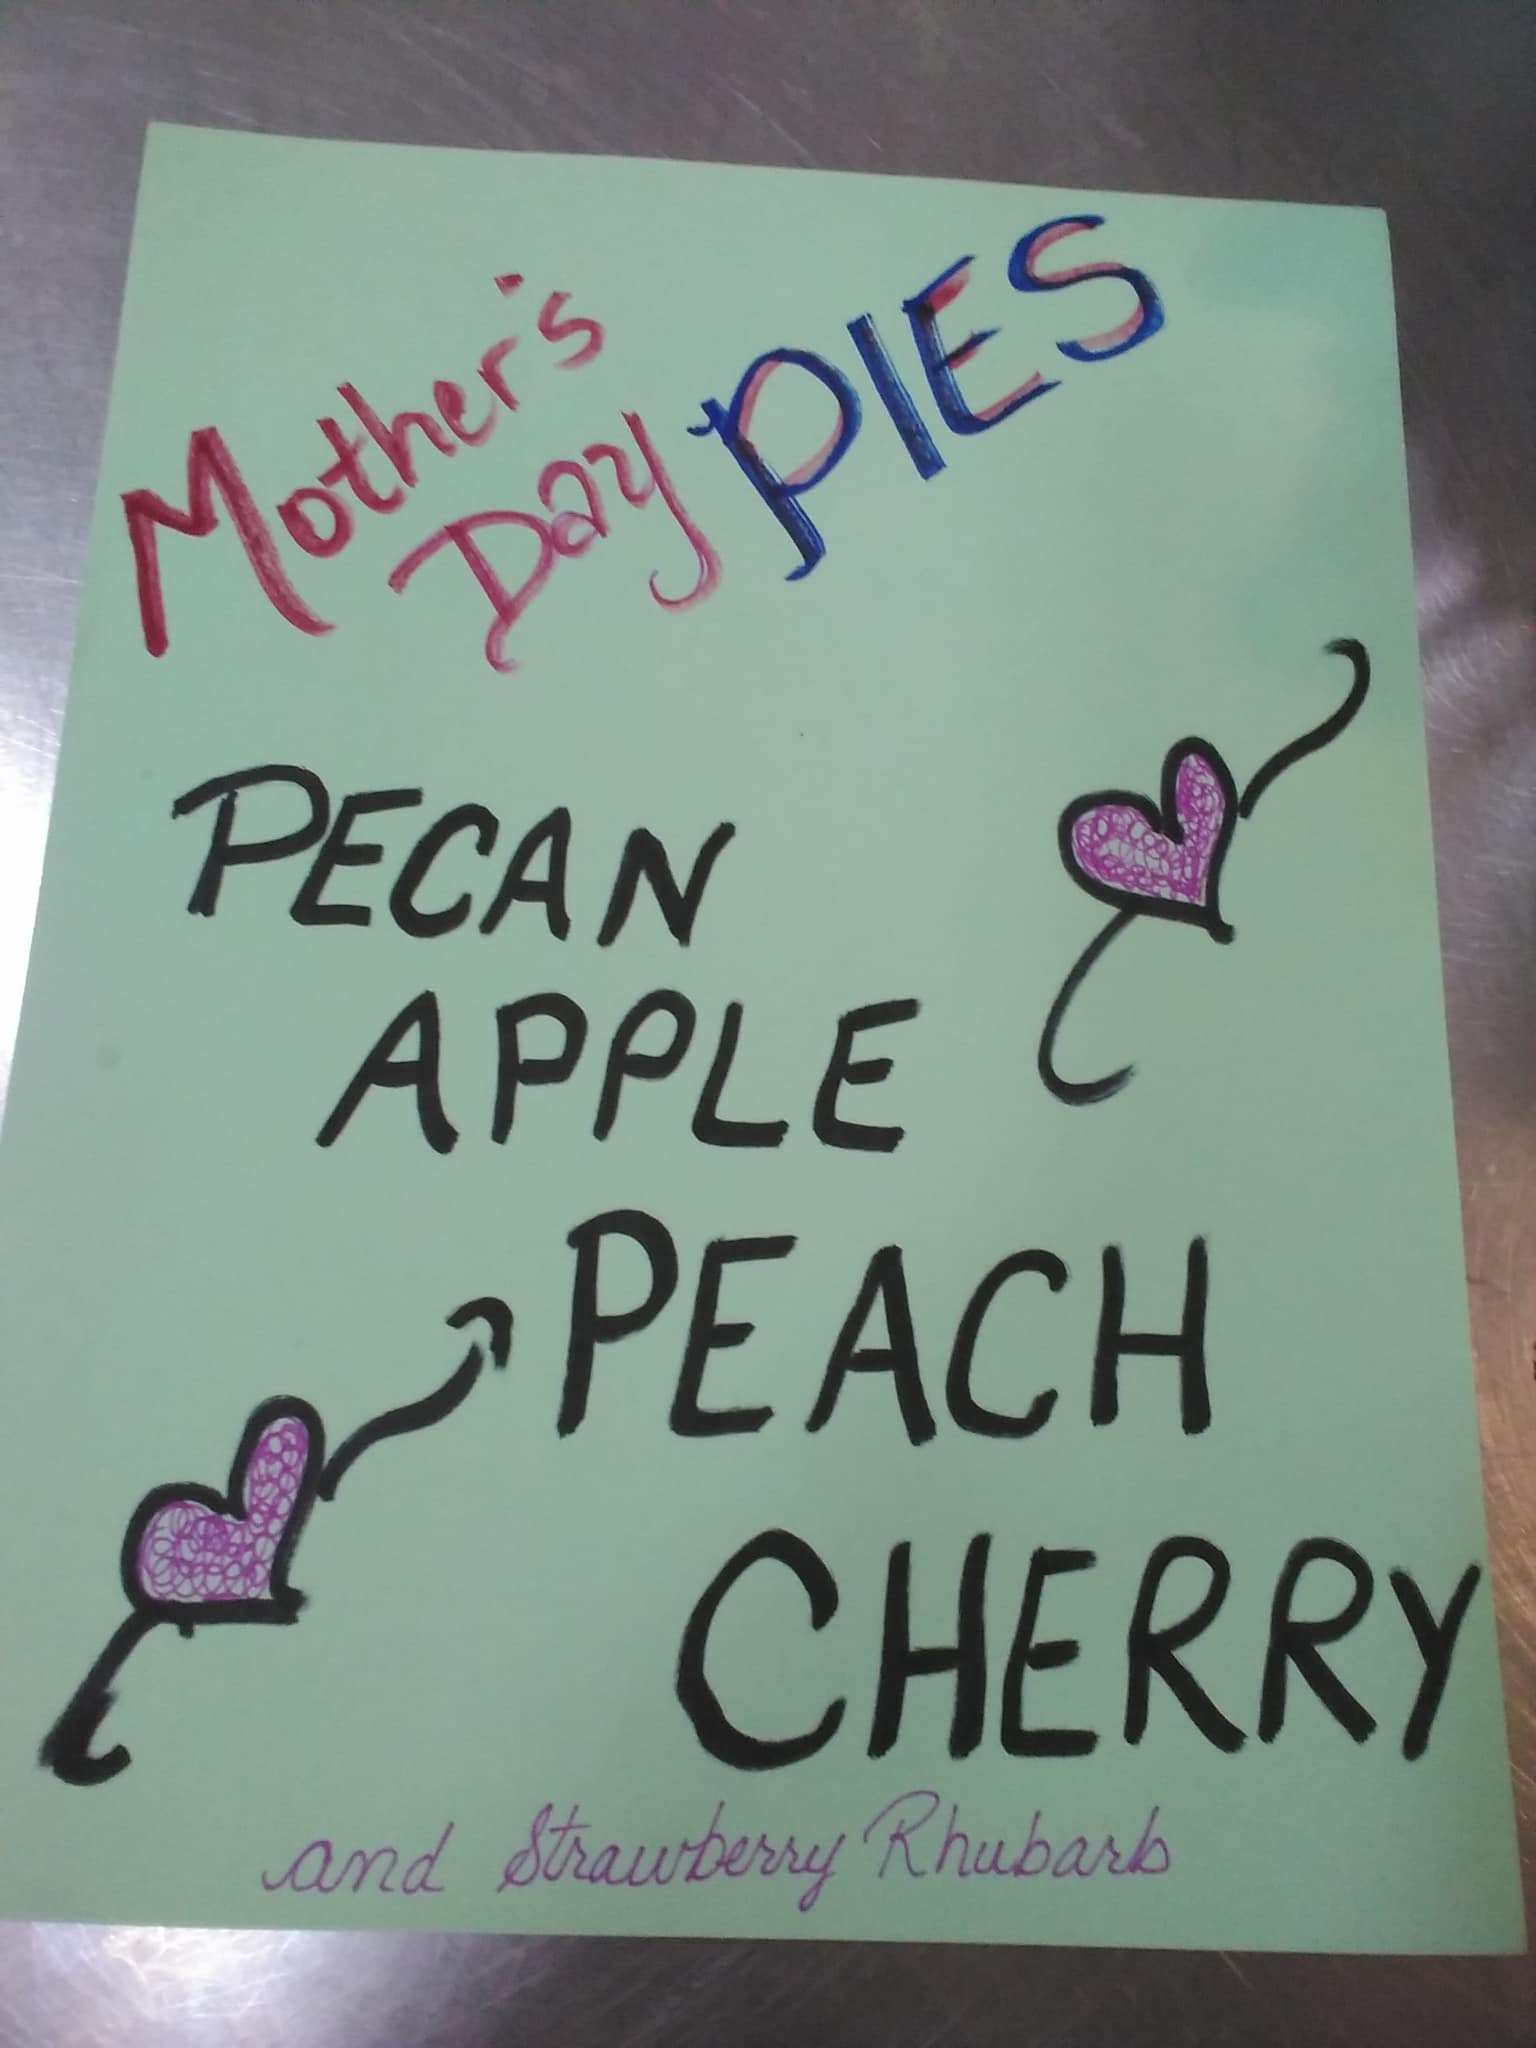 Mother's
Day PIES
PECAN
APPLE
PEACH
CHERRY
and Strawberry Rhubarb